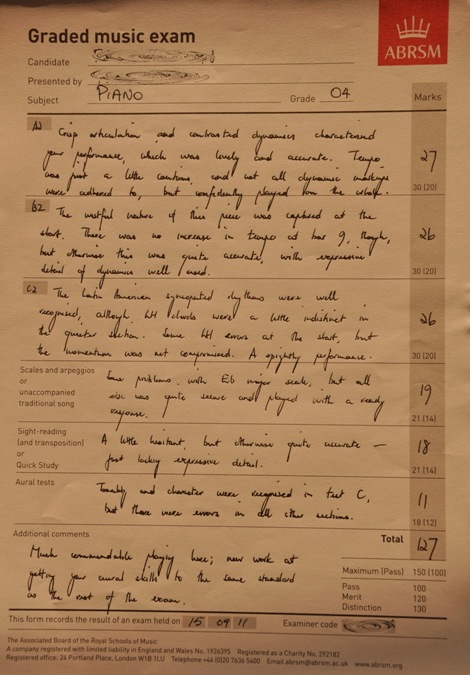 Graded music exam
ABRSM
Candidate
Presented by
Subject PIANO Grade 04 Marks
A1
Crisp articulation and contrasted dynamics characterised
your performance, which was lovely and accurate. Tempo
was just a little cautious, and not all dynamic markings
were adhered to, but confidently played on the whole.
27
30 (20)
B2
The wistful nature of this piece was captured at the
start. There was no increase in tempo at bar 9, though,
but otherwise this was quite accurate, with expressive
detail of dynamics well used.
26
30 (20)
C2
The Latin American syncopated rhythms were well
recognised, although LH chords were a little indistinct in
the quieter section. Some LH errors at the start, but
the momentum was not compromised. A sprightly performance.
26
30 (20)
Scales and arpeggios
or
unaccompanied
traditional song
Some problems with Eb major scale, but all
else was quite secure and played with a ready
response.
19
21 (14)
Sight-reading
(and transposition)
or
Quick Study
A little hesitant, but otherwise quite accurate –
just lacking expressive detail.
18
21 (14)
Aural tests
Tonality and character were recognised in test C,
but there were errors in all other sections.
11
18 (12)
Additional comments
Total 127
Much commendable playing here; now work at
getting your aural skills to the same standard
as the rest of the exam.
Maximum (Pass) 150 (100)
Pass 100
Merit 120
Distinction 130
This form records the result of an exam held on 15 09 11 Examiner code
The Associated Board of the Royal Schools of Music
A company registered with limited liability in England and Wales No. 1926395 Registered as a Charity No. 292182
Registered office: 24 Portland Place, London W1B 1LU Telephone +44 (0)20 7636 5400 Email abrsm@abrsm.ac.uk www.abrsm.org